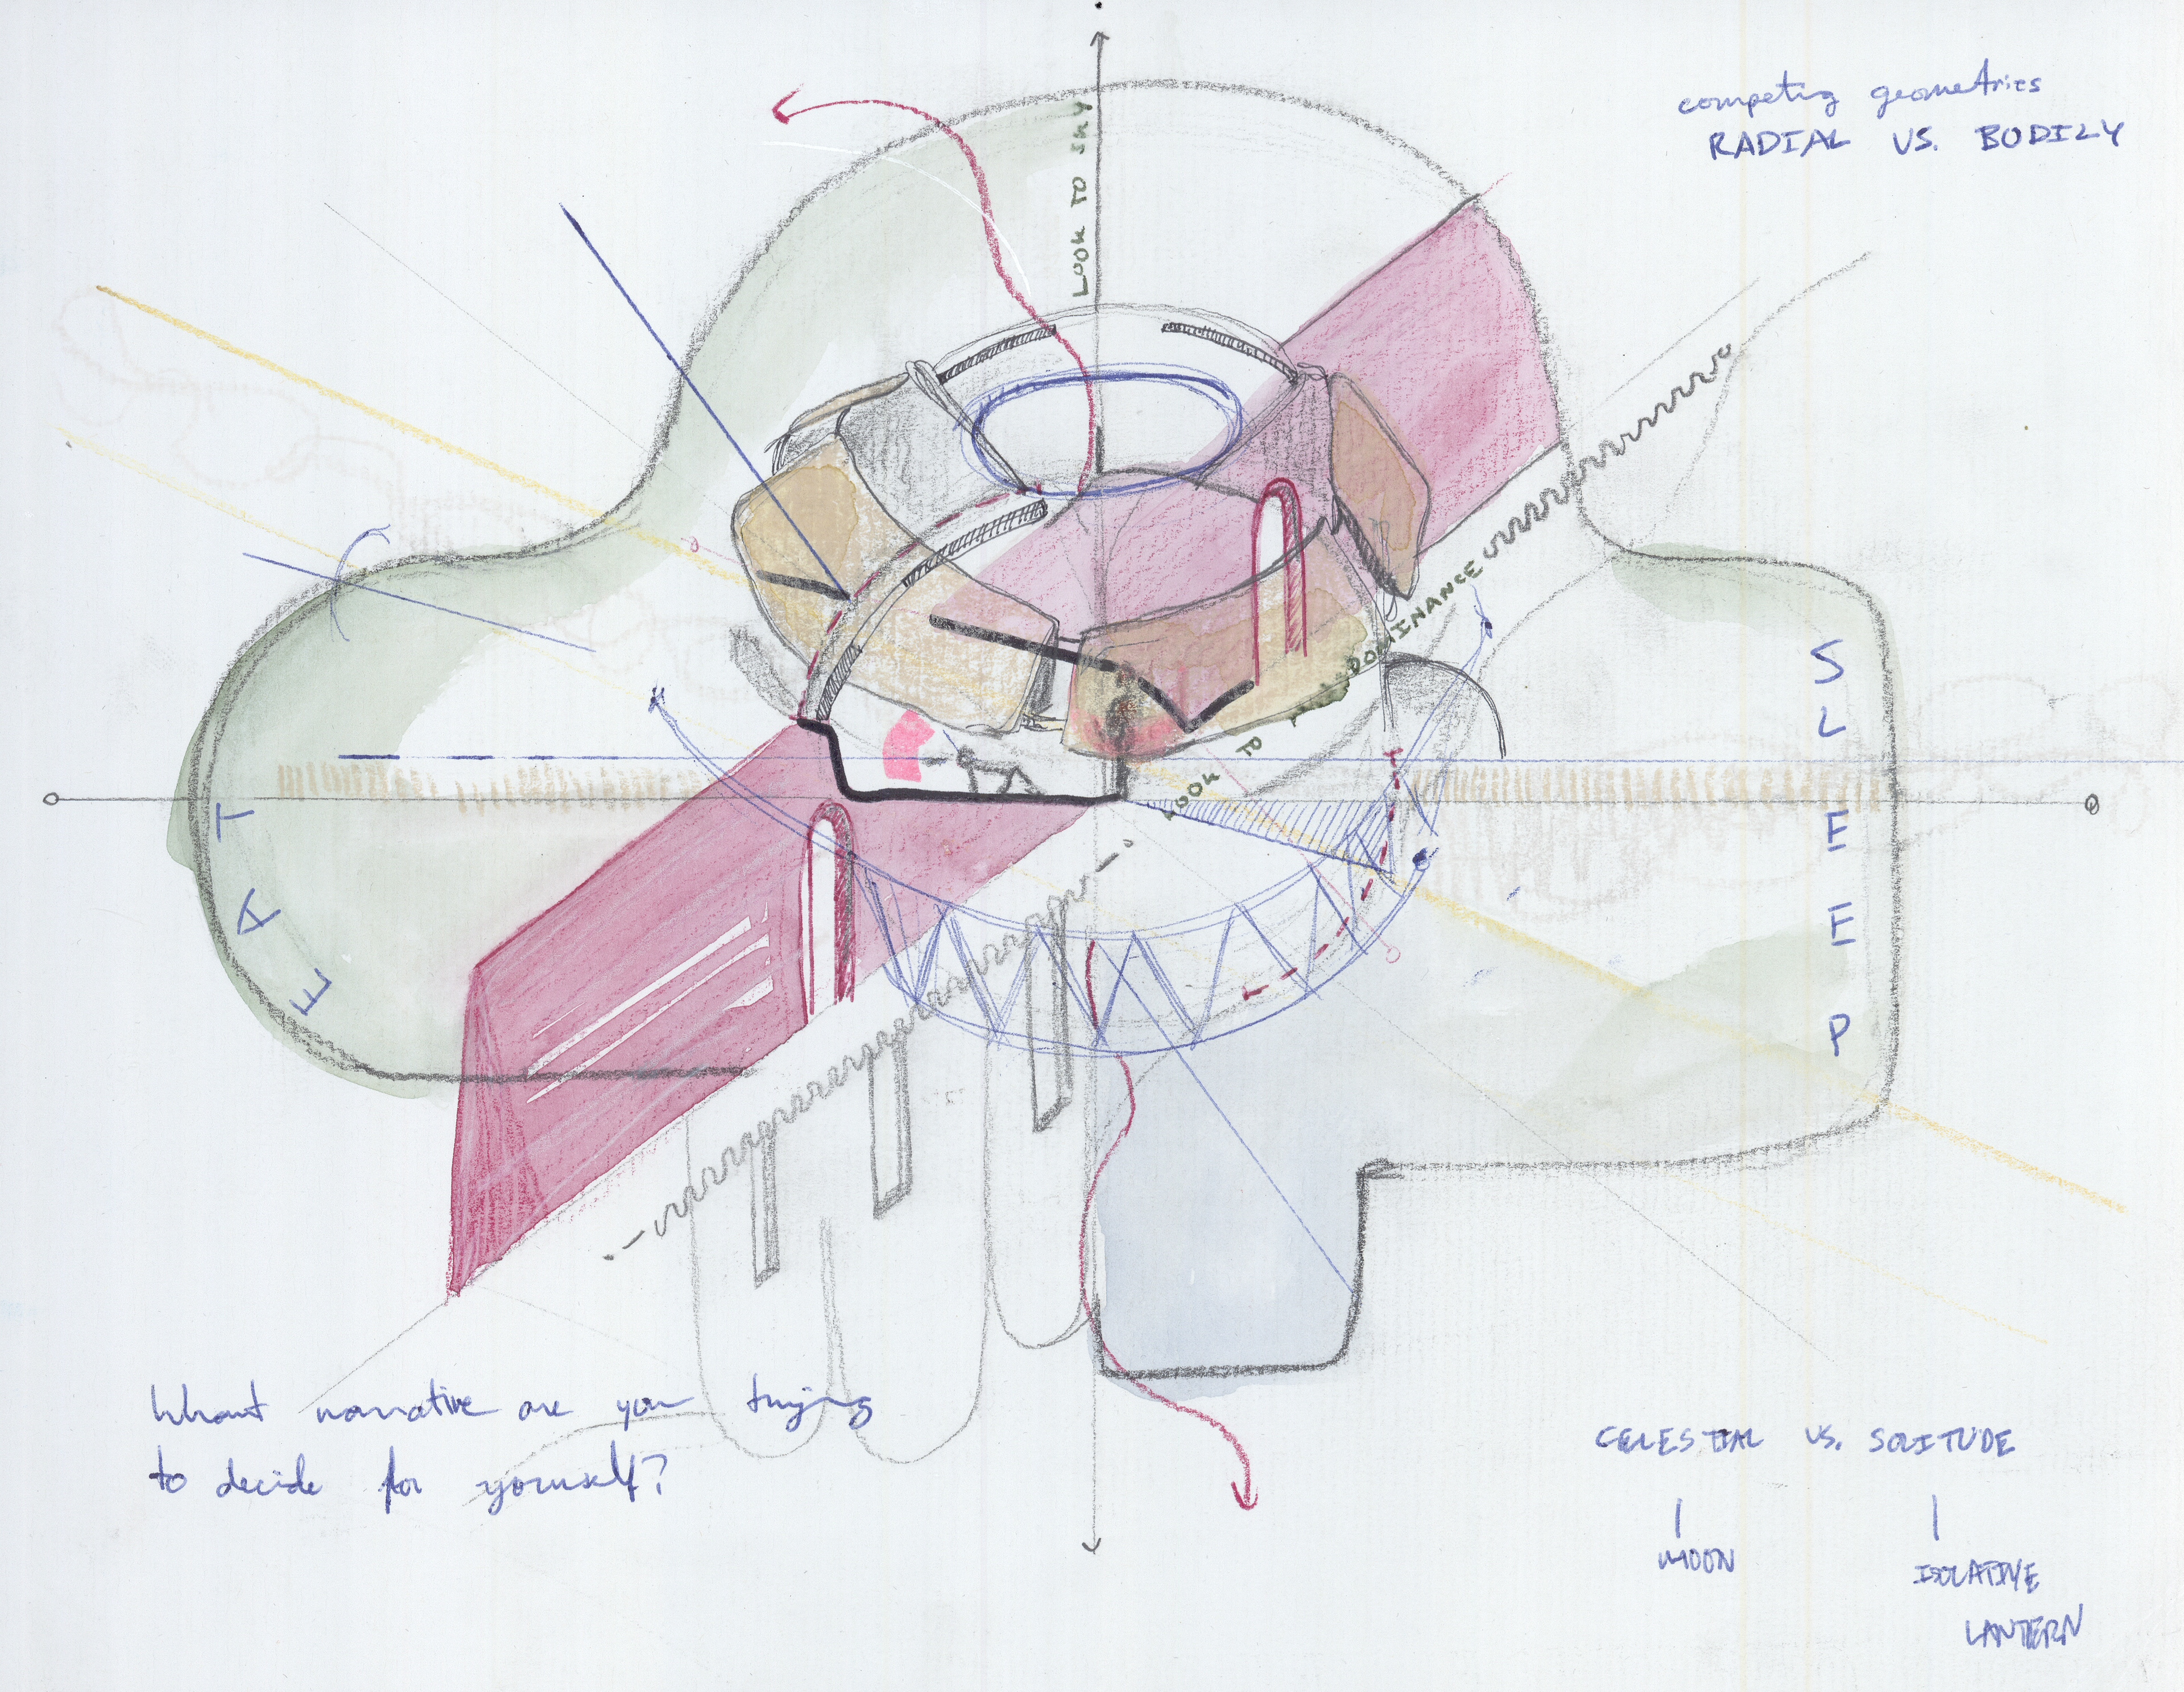 competing geometries
RADIAL VS. BODILY
LOOK TO SKY
LOOK TO DOMINANCE
EAT
SLEEP
What narrative are you trying
to decide for yourself?
CELESTIAL VS. SOLITUDE
MOON
ISOLATIVE
LANTERN